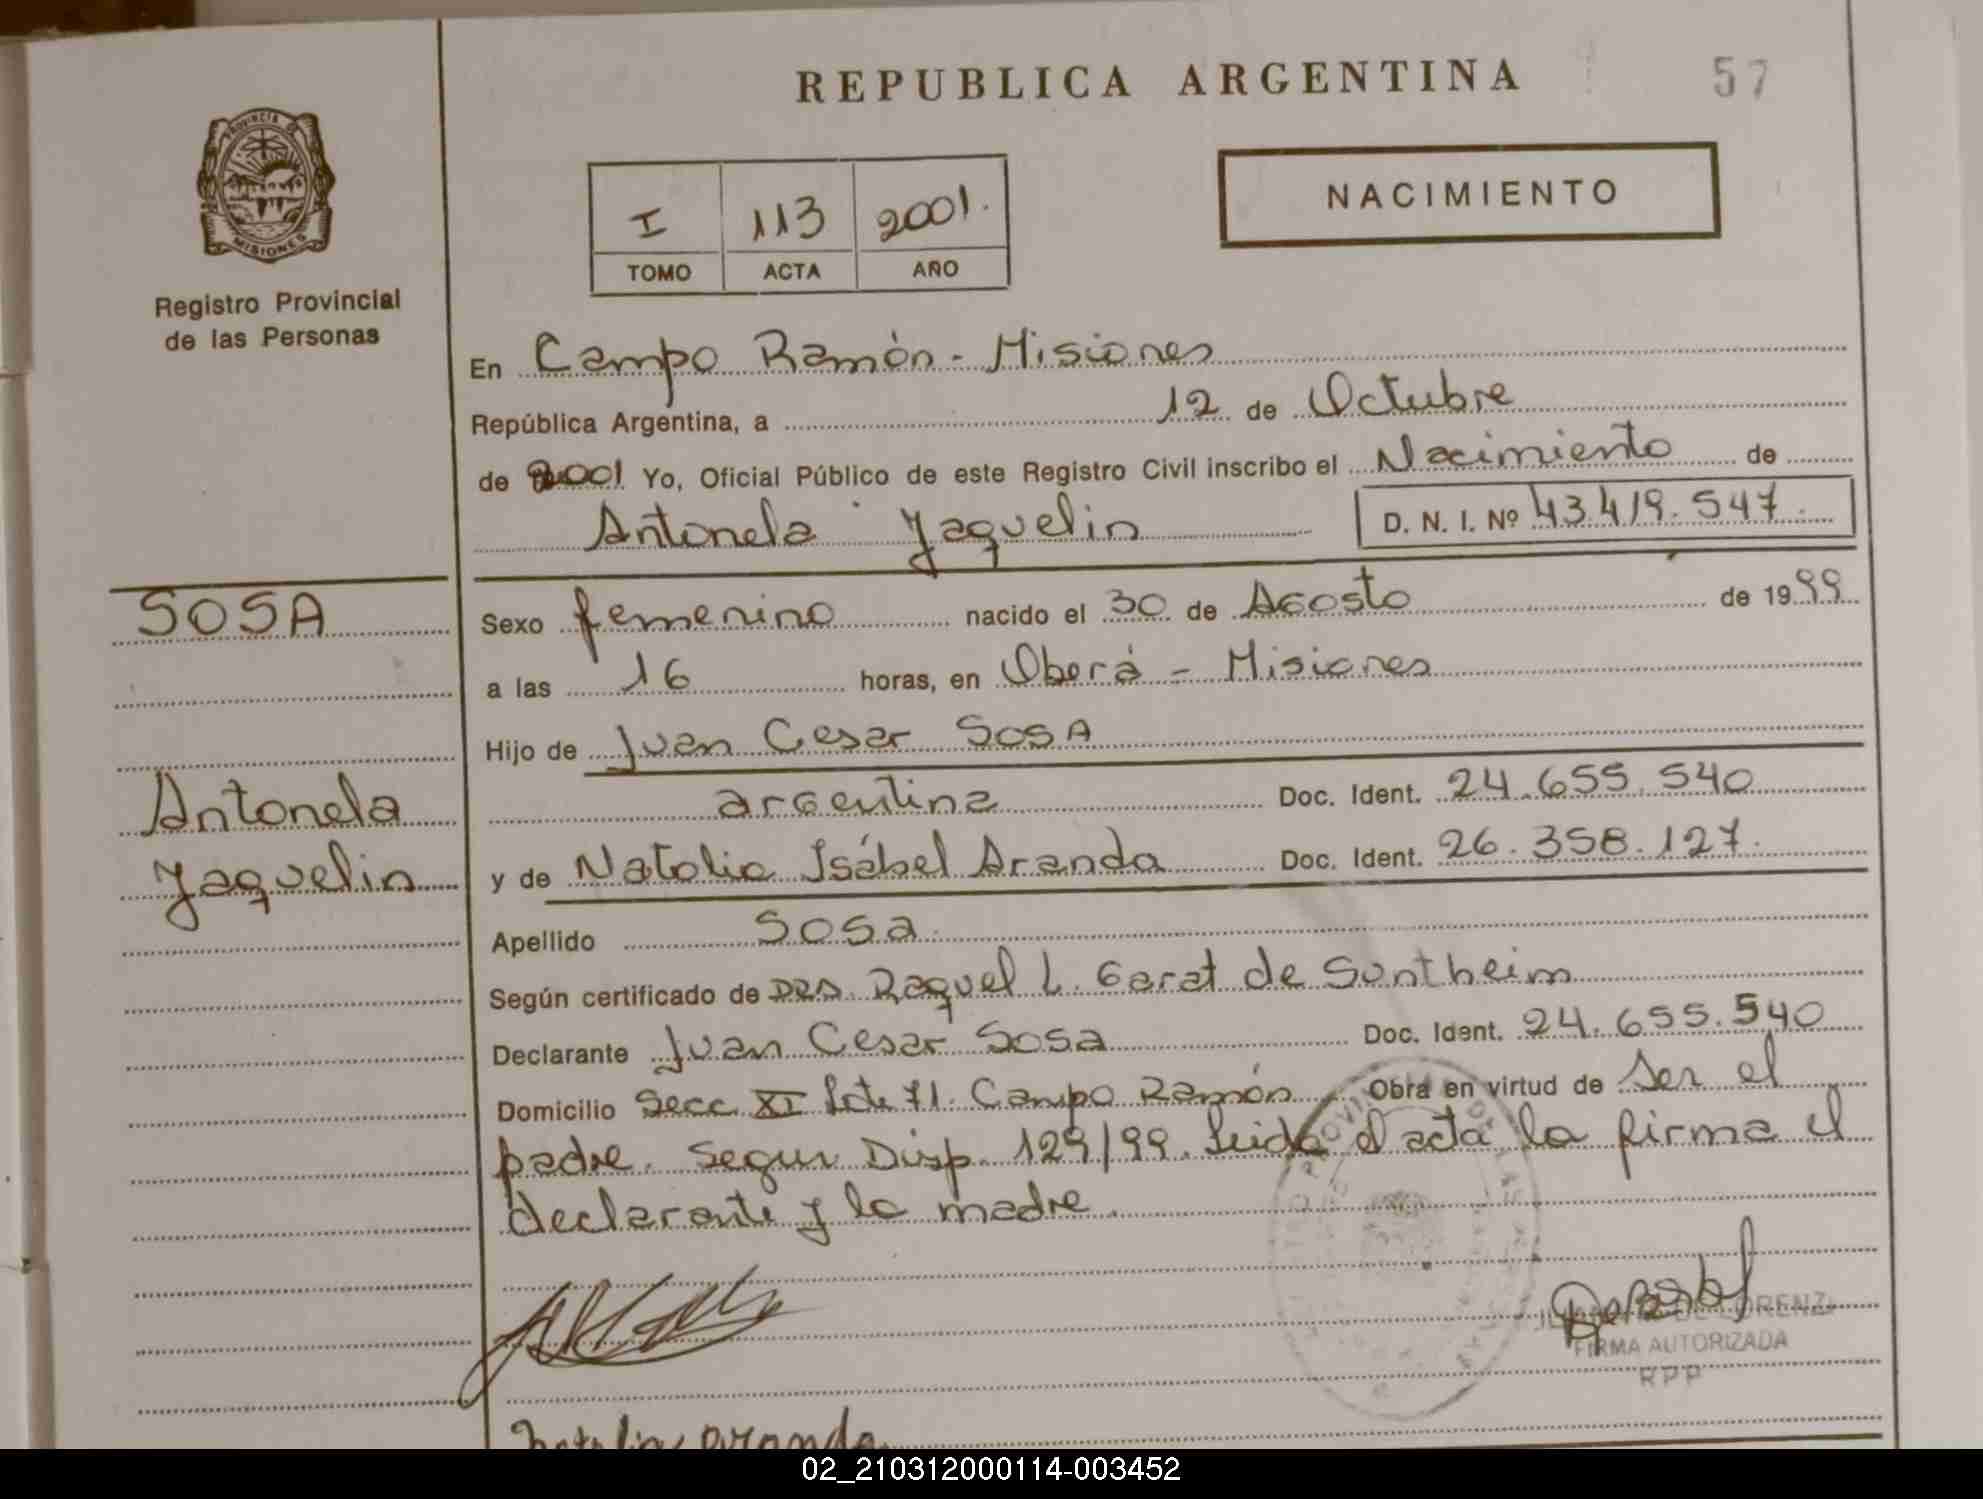 REPUBLICA ARGENTINA
57
PROVINCIA DE
MISIONES
Registro Provincial
de las Personas
I 113 2001.
TOMO ACTA AÑO
NACIMIENTO
En Campo Ramón - Misiones
República Argentina, a 12 de Octubre
de 2001 Yo, Oficial Público de este Registro Civil inscribo el Nacimiento de
Antonela Yaquelin
D. N. I. Nº 43.419.547.
SOSA
Antonela
Yaquelin
Sexo femenino nacido el 30 de Agosto de 1999
a las 16 horas, en Oberá - Misiones
Hijo de Juan Cesar SOSA
argentina Doc. Ident. 24.655.540
y de Natalia Isábel Aranda Doc. Ident. 26.358.127.
Apellido Sosa
Según certificado de DRA. Raquel L. Garat de Suntheim
Declarante Juan Cesar Sosa Doc. Ident. 24.655.540
Domicilio Secc. XI Lote 71. Campo Ramón Obra en virtud de ser el
padre. Segun Disp. 129/99. Leida el acta la firma el
declarante y la madre.
DE LORENZI
FIRMA AUTORIZADA
RPP
Natalia Aranda
02_210312000114-003452